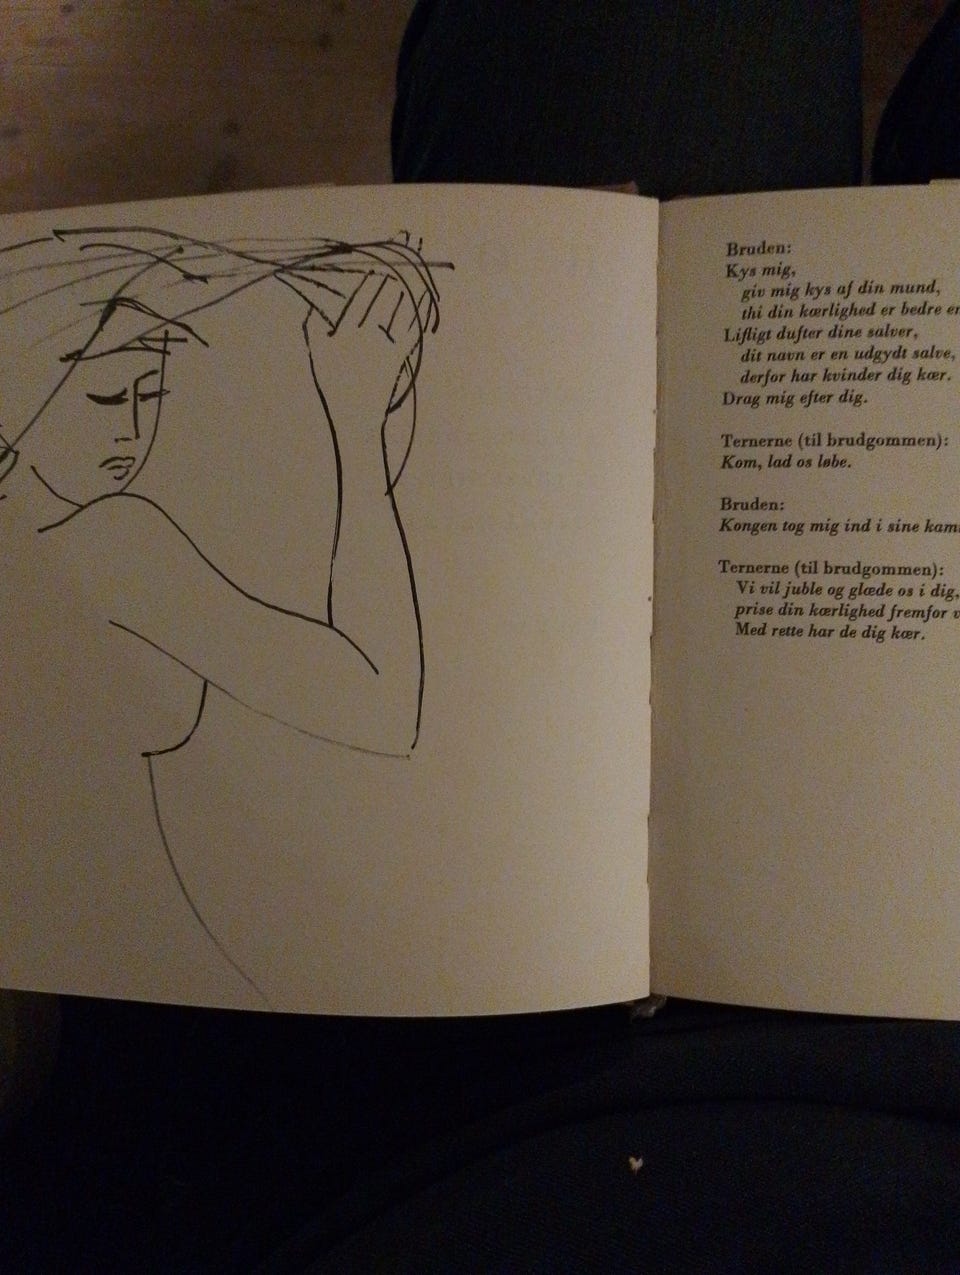 Bruden:
Kys mig,
giv mig kys af din mund,
thi din kærlighed er bedre
Lifligt dufter dine salver,
dit navn er en udgydt salve,
derfor har kvinder dig kær.
Drag mig efter dig.
Ternerne (til brudgommen):
Kom, lad os løbe.
Bruden:
Kongen tog mig ind i sine
Ternerne (til brudgommen):
Vi vil juble og glæde os i dig,
prise din kærlighed fremfor
Med rette har de dig kær.